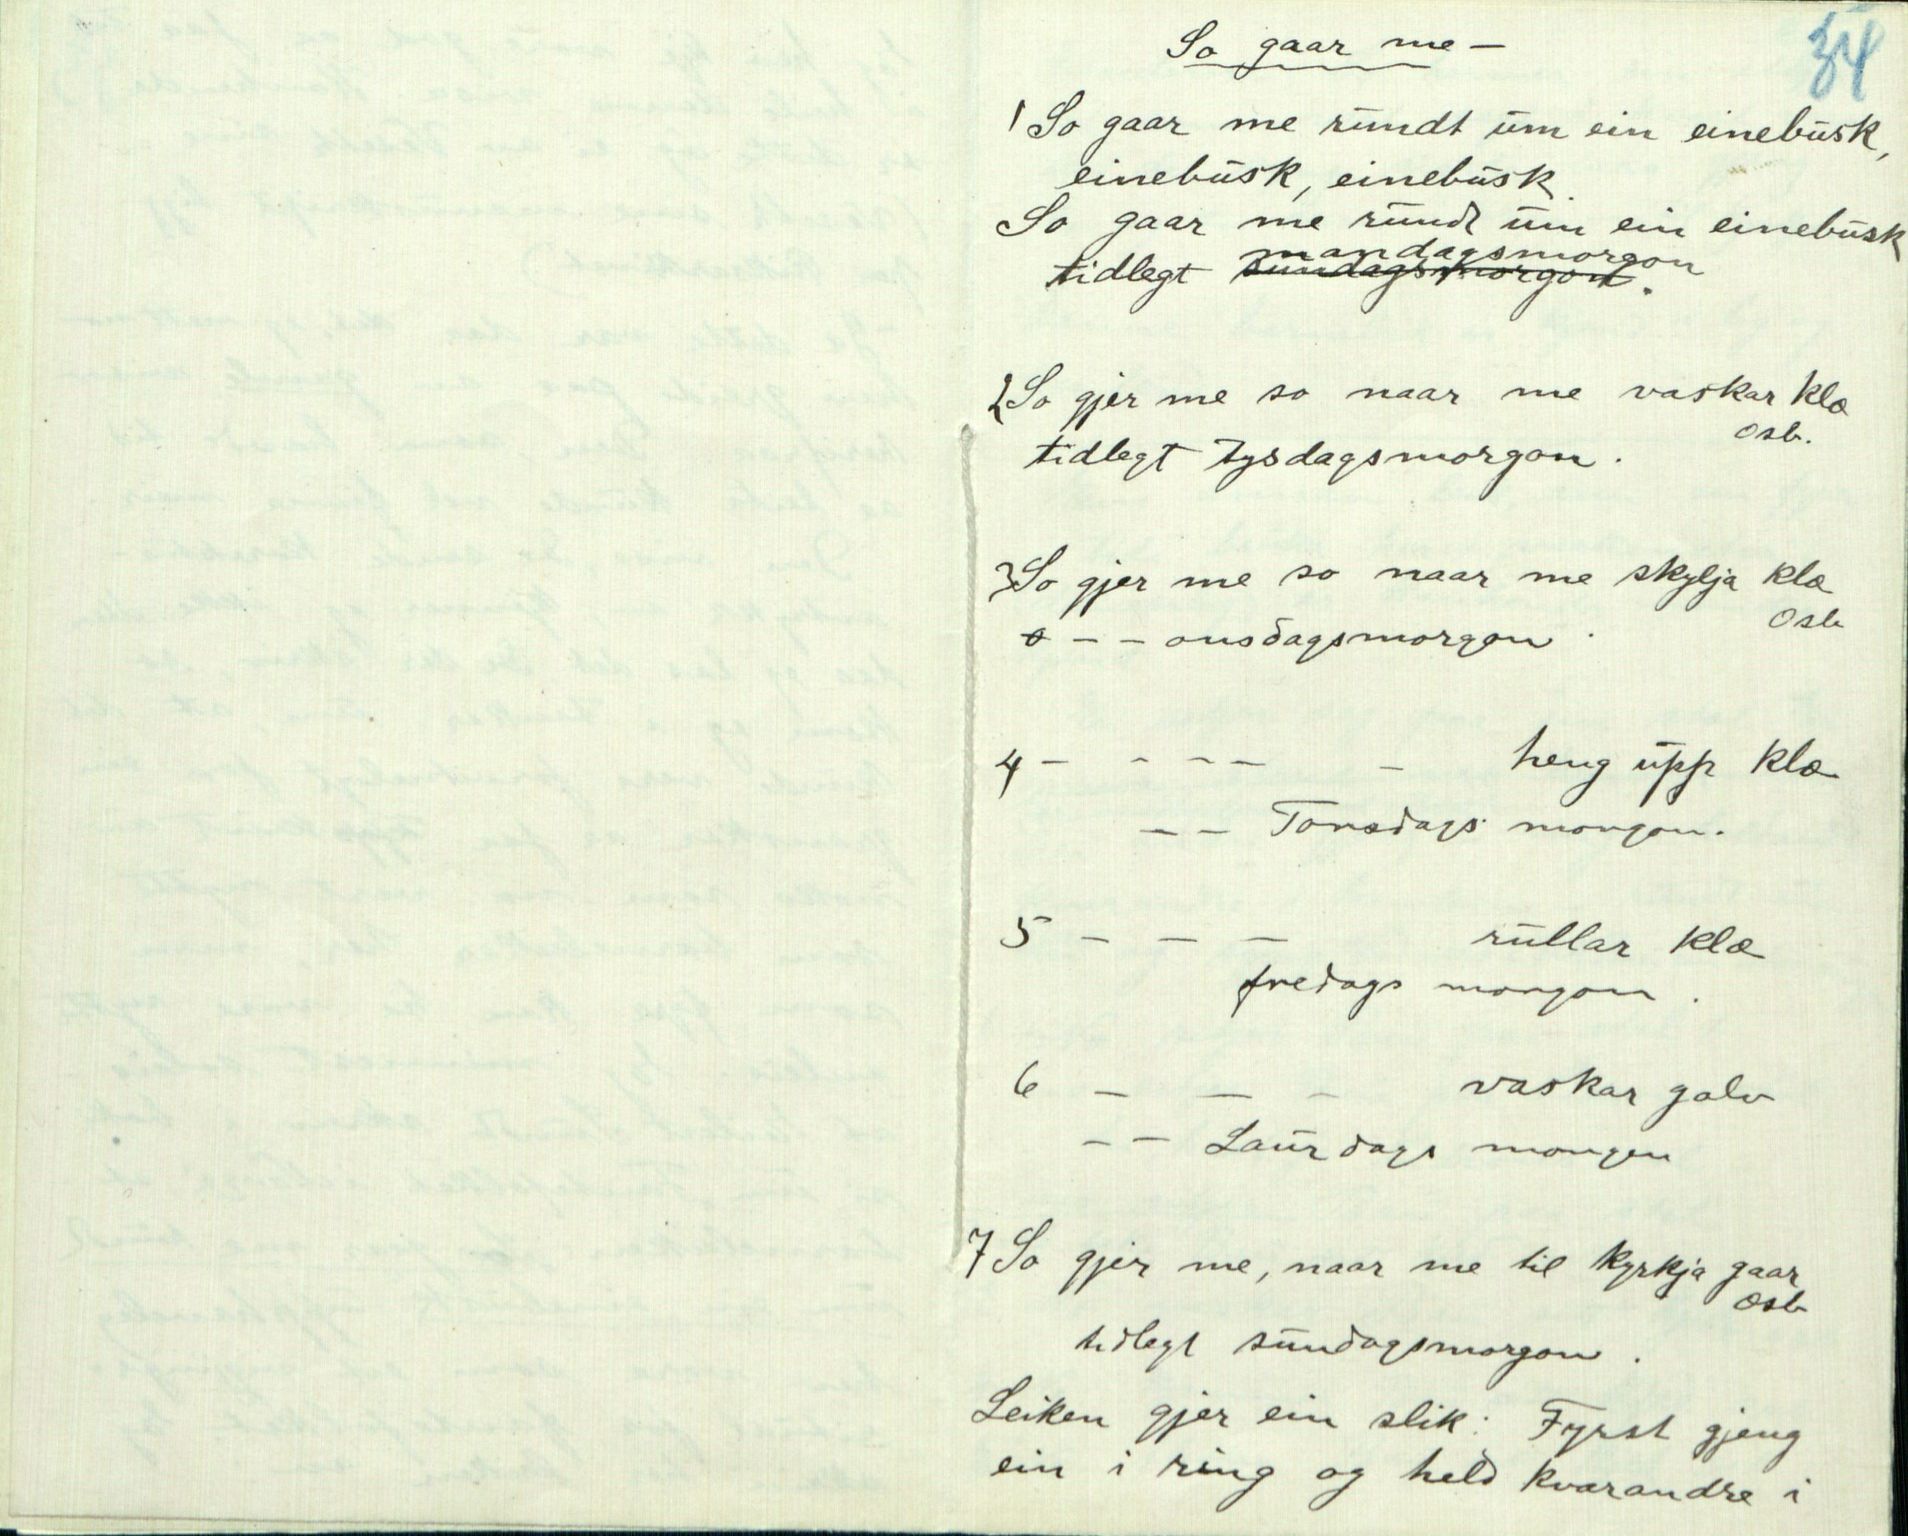 34
So gaar me –
1 So gaar me rundt um ein einebusk,
einebusk, einebusk.
So gaar me rundt um ein einebusk
mandagsmorgon
tidlegt sundagsmorgon.
2 So gjer me so naar me vaskar klæ
osb.
tidlegt tysdagsmorgon.
3 So gjer me so naar me skylja klæ
osb
– – onsdagsmorgon.
4 – – – – – heng upp klæ
– – Torsdags morgon.
5 – – – rullar klæ
fredags morgon.
6 – – – vaskar golv
– – Laurdags morgon
7 So gjer me, naar me til kyrkja gaar
osb
tidlegt sundagsmorgon.
Leiken gjer ein slik: Fyrst gjeng
ein i ring og held kvarandre i